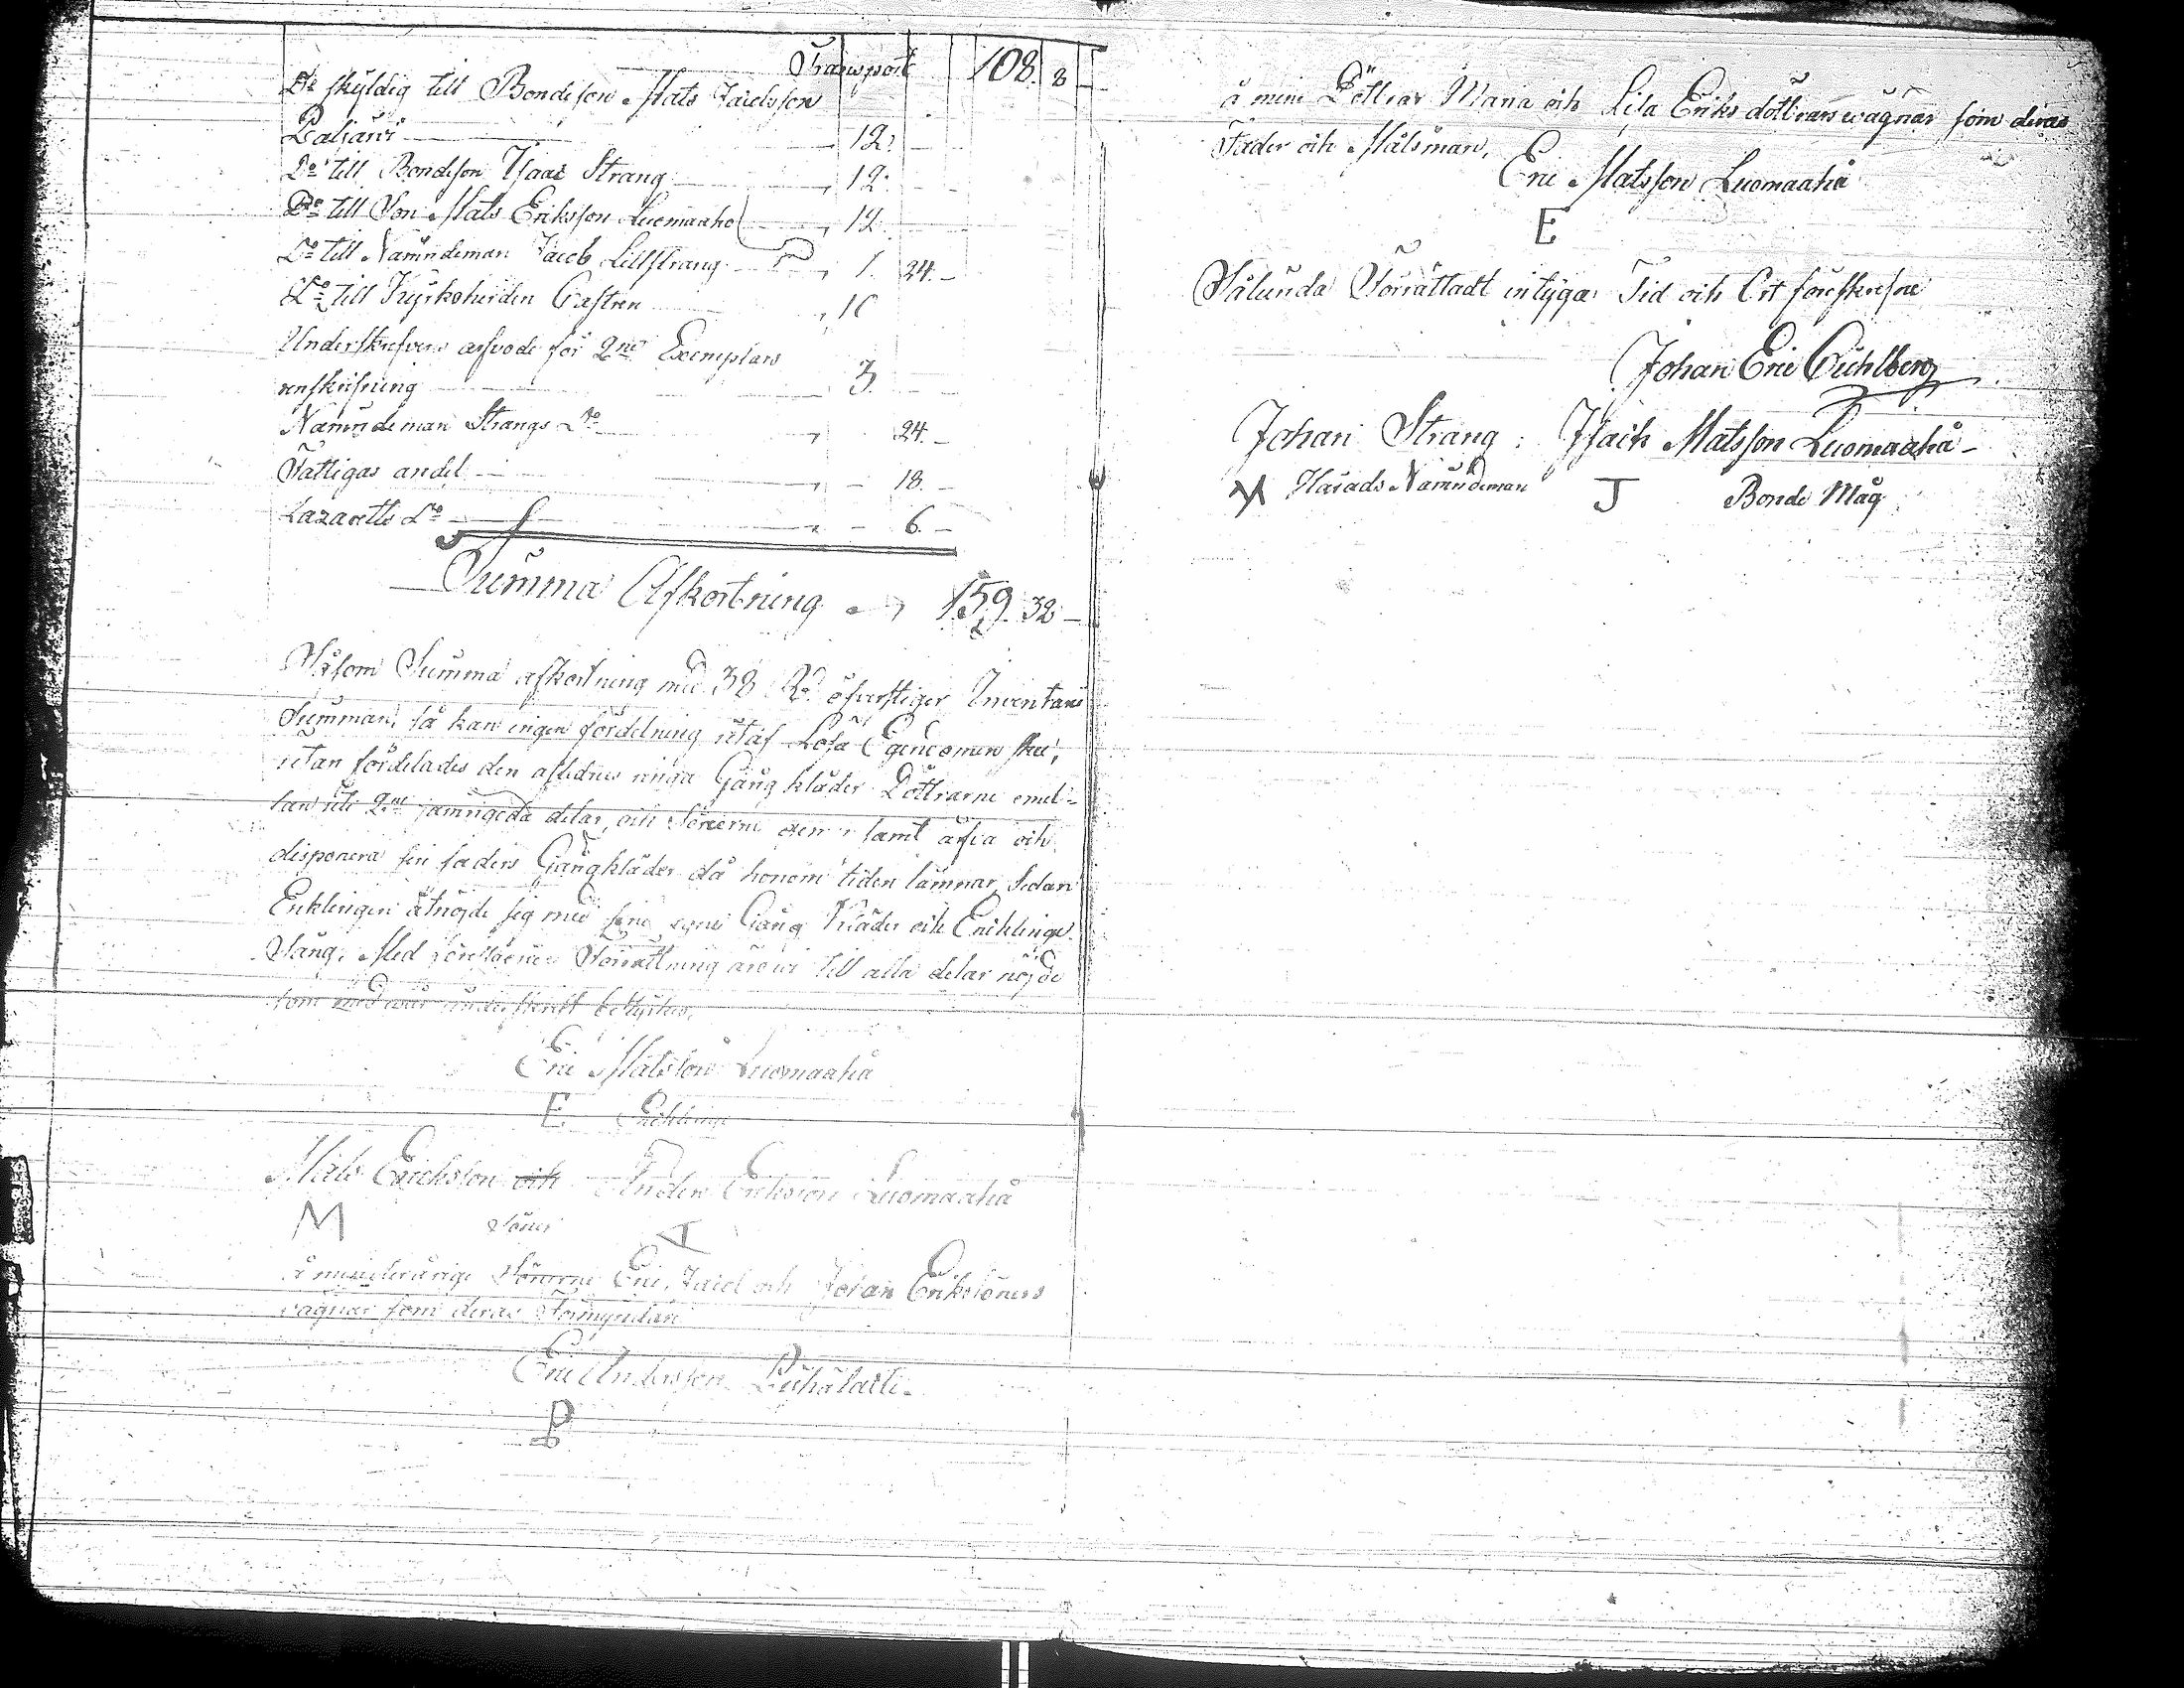 Transport 108. 8
Do skyldig till Bondeson Mats Jacksson
Paljarvi 12.
Do till Bondeson Isaac Strang 12.
Do till Son Mats Eriksson Luomaaho 12.
Do till Nämndeman Jacob Lillstrang 1. 24.
Do till Kyrkoherden Castren 10
Underskrefvens arfvode för 2ne Exemplars
renskrifning 3.
Nämndeman Strangs Do 24.
Fattigas andel 18.
Lazaretts Do 6.
Summa Afkortning 159. 32
Såsom Summa afkortning med 38 Rd öfverstiger Inventarii
Summan, så kan ingen fördelning utaf Lösa Egendomen ske,
utan fördelades den aflednes ringa Gång kläder Döttrarne emel-
lan uti 2ne jämngoda delar, och Sönerne samt ärfva och
disponera sin faders Gångkläder då honom tiden lämnar, sedan
Enklingen åtnöjde sig med sine egne Gång Kläder och Encklinge
Säng. Med Förrättning äro vi till alla delar nöjde
som med vår underskrift bestyrkes.
Eric Matsson Luomaaho
E Encklinge
Mats Erickson och Anders Erickson Luomaaho
M Söner A
å minderårige Sönerne Eric, Jacob och Johan Erikssöners
vägnar som deras Förmyndare
Eric Andersson
P
å mine Döttrar Maria och Lisa Eriks döttrars wägnar som deras
Fader och Målsman,
Eric Matsson Luomaaho
E
Sålunda Förrättadt intyga Tid och Ort föreskrefne
Johan Eric
Johan Strang. Isach Matsson Luomaaho
Härads Nämndeman J Bonde Måg